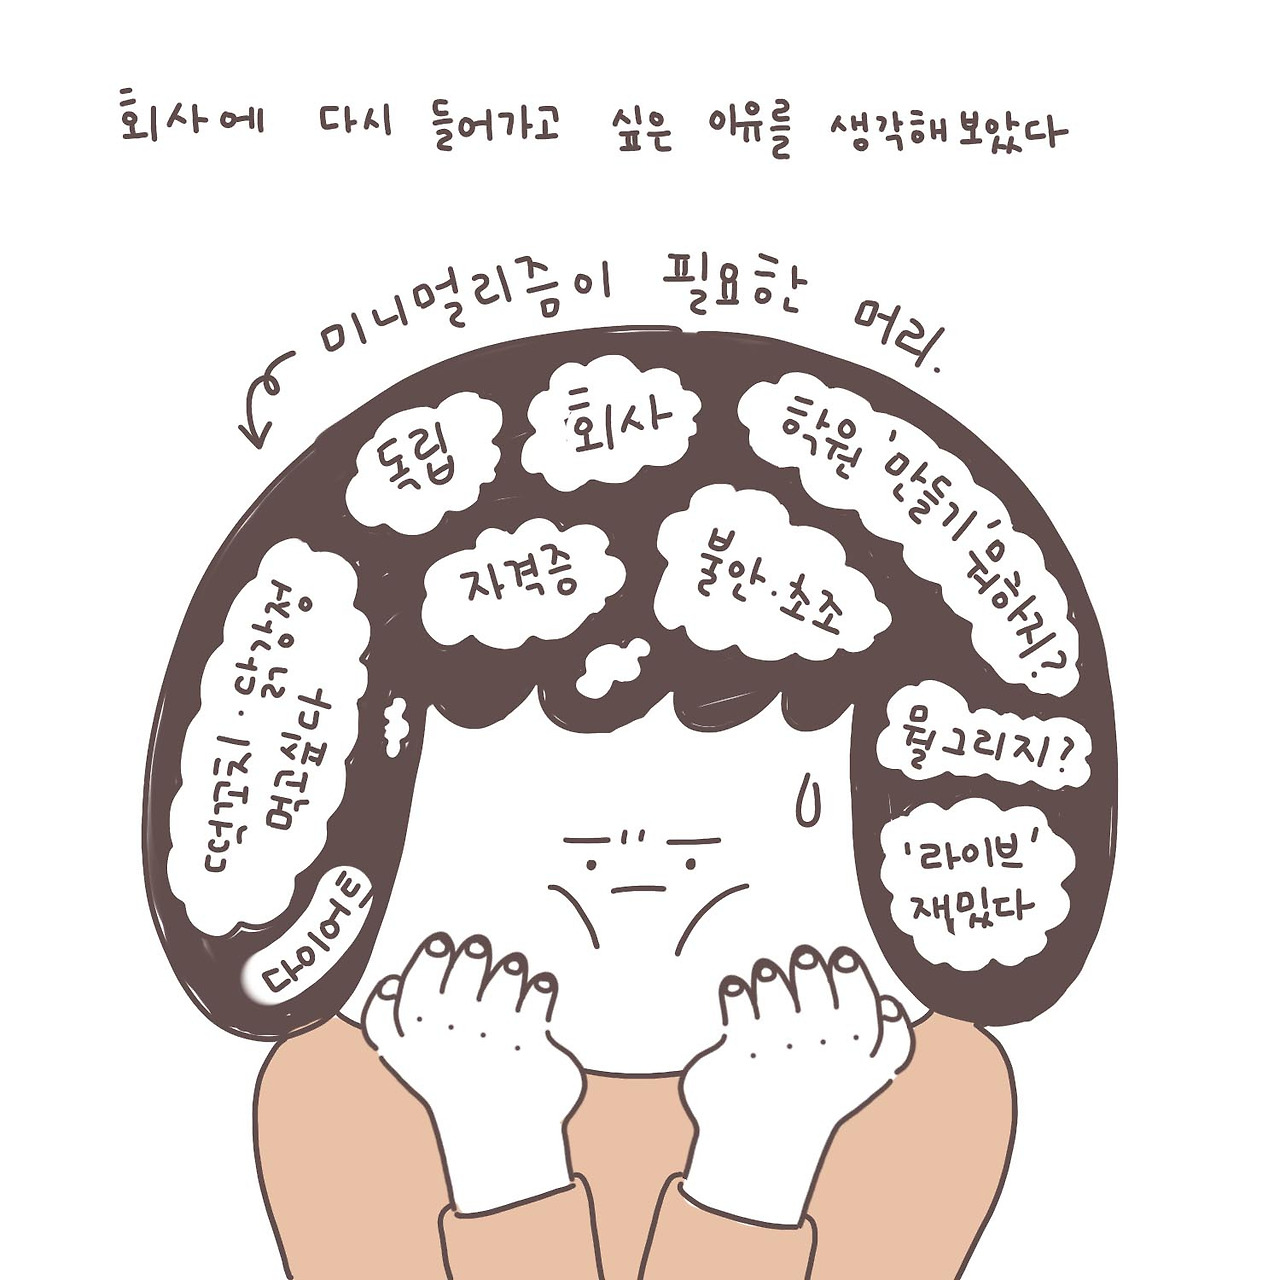 회사에 다시 들어가고 싶은 이유를 생각해보았다
미니멀리즘이 필요한 머리.
독립
회사
학원 '만들기' 뭐하지?
자격증
불안·초조
떡꼬치·닭강정
먹고싶다
다이어트
뭘그리지?
'라이브'
재밌다